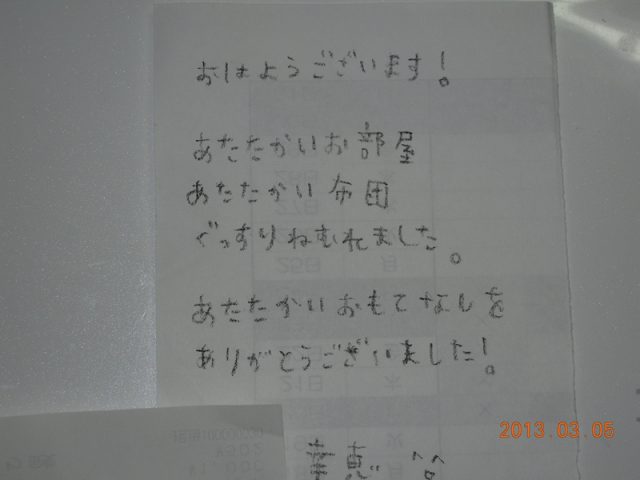 おはようございます!。
あたたかいお部屋
あたたかい布団
ぐっすりねむれました。
あたたかいおもてなしを
ありがとうございました!。
2013.03.05